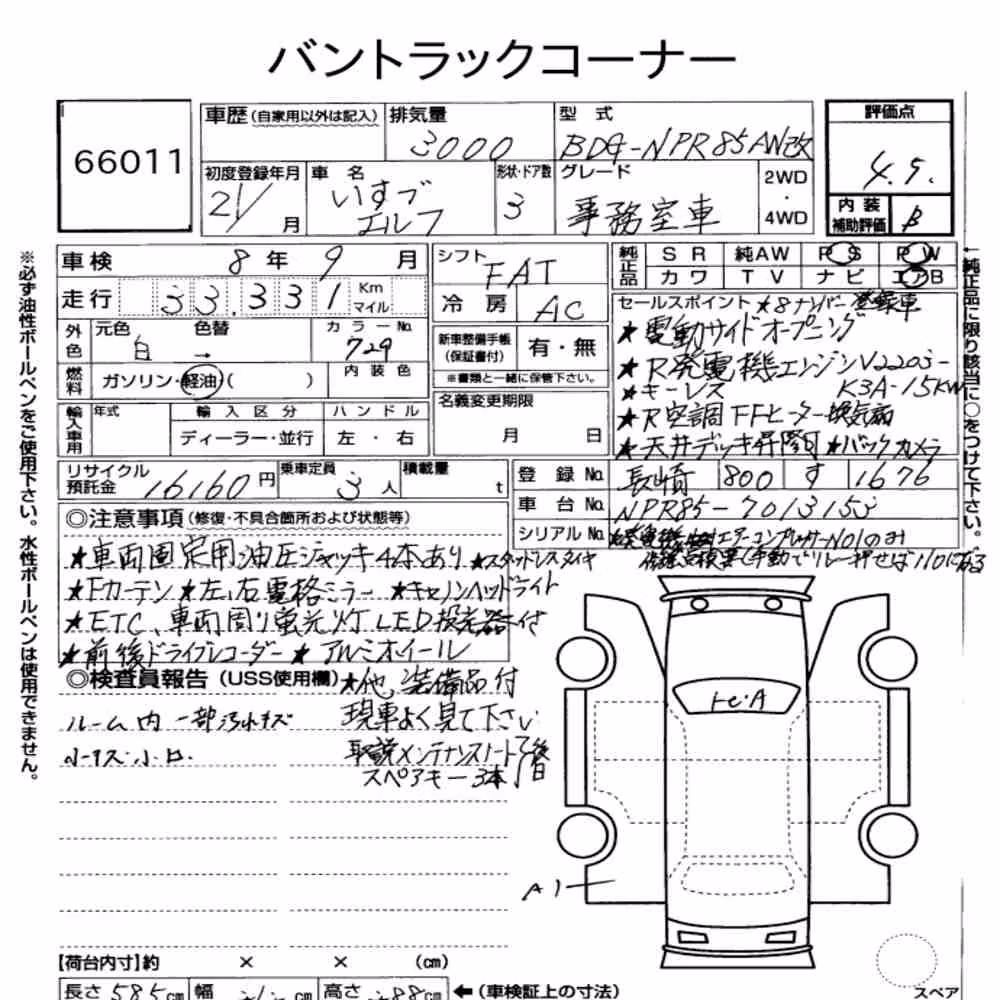 バントラックコーナー
66011
車歴(自家用以外は記入)
排気量
3000
型式
BDG-NPR85AN改
評価点
4.5.
内装補助評価 B
初度登録年月
21/ 月
車名
いすゞ
エルフ
形状・ドア数
3
グレード
事務室車
2WD
・
4WD
車検 8年 9月
走行 33,331 Km マイル
シフト FAT
冷房 AC
純正品 SR 純AW PS PW
カワ TV ナビ エアB
外色 元色 白 色替 →
カラーNo. 729
内装色
燃料 ガソリン・軽油・( )
新車整備手帳(保証書付) 有・無
※書類と一緒に保管下さい。
輸入車用 年式 輸入区分 ハンドル
ディーラー・並行 左・右
名義変更期限
月 日
セールスポイント ★8ナンバー登録車
★電動サイドオープニング
★R発電機エンジンV2203-
K3A-15KW
★キーレス
★R空調FFヒーター換気扇
★天井デッキ昇降可 ★バックカメラ
リサイクル預託金 16160円
乗車定員 3人
積載量 t
登録No. 長崎 800 す 1676
車台No. NPR85-7013153
シリアルNo.
◎注意事項(修復・不具合箇所および状態等)
★車両固定用油圧ジャッキ4本あり ★スタッドレスタイヤ
★Fカーテン ★左、右電格ミラー ★キセノンヘッドライト
★ETC、車両周り蛍光灯LED投光器付
★前後ドライブレコーダー ★アルミホイール
◎検査員報告(USS使用欄)
★他、装備品付
現車よく見て下さい
取説メンテナンスノート
スペアキー3本
後日
ルーム内一部汚れキズ
小キズ・小凹
A1
【荷台内寸】約 × × (cm)
長さ 585cm 幅 cm 高さ cm ←(車検証上の寸法)
スペア
※必ず油性ボールペンをご使用下さい。水性ボールペンは使用できません。
←純正品に限り該当に○をつけて下さい。